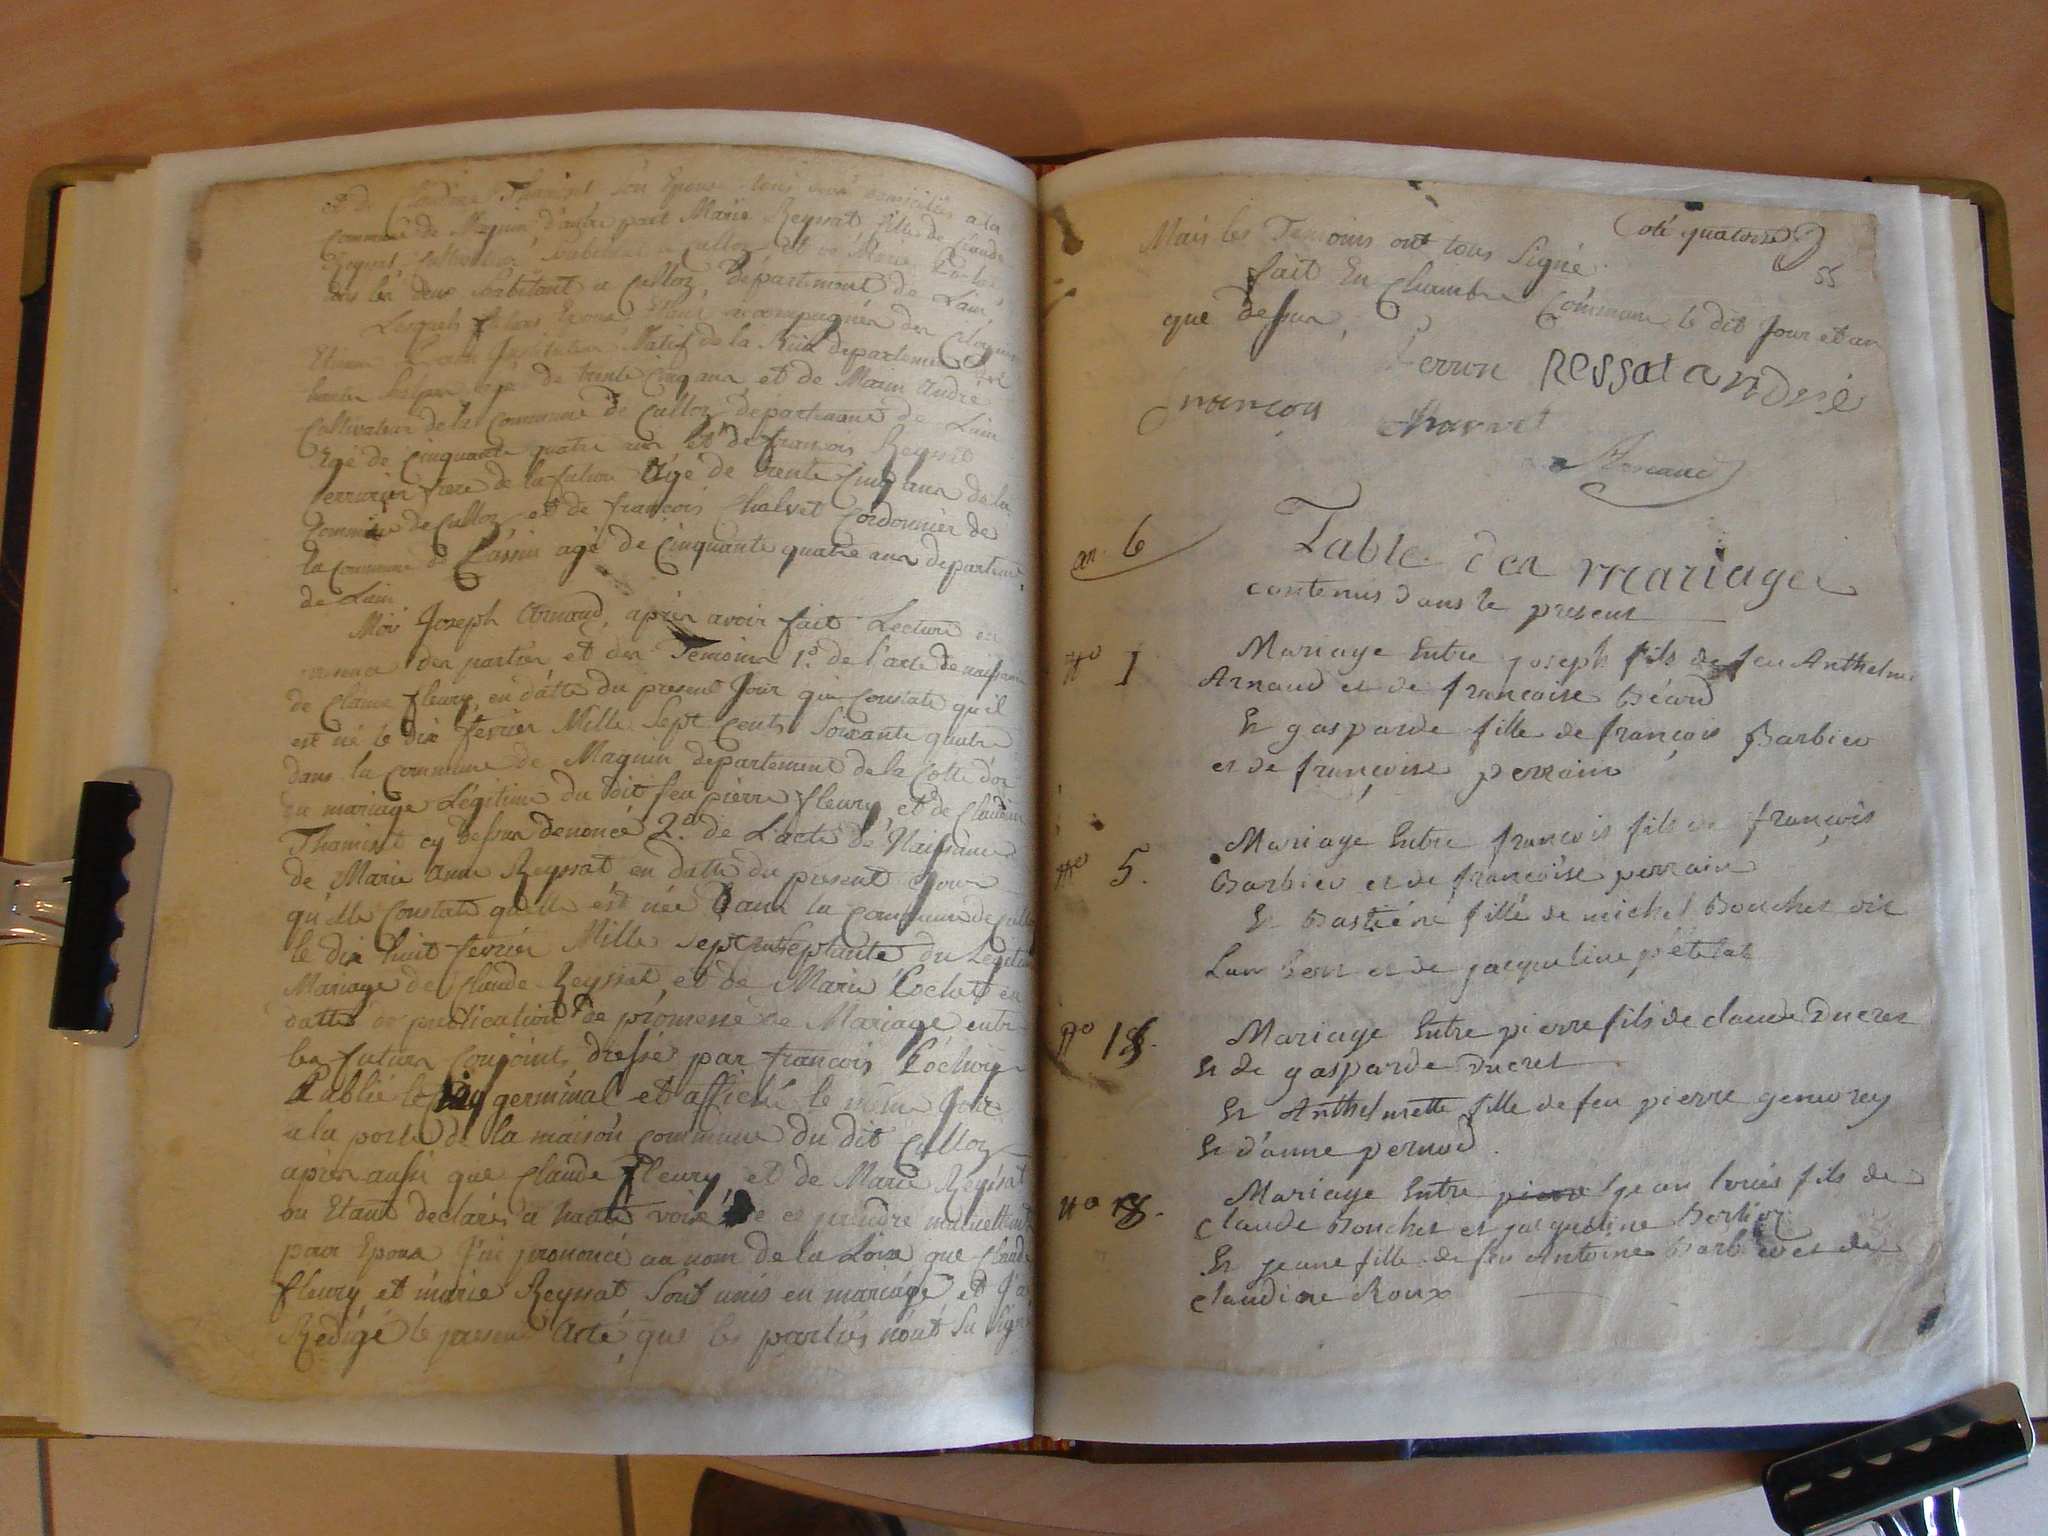 et de Claudine Thaminet son Epouse tous deux domiciliés a la
Commune de Magnin d'autre part Marie Reyssat fille de Claude
Reyssat Cultivateur habitant a Culloz et de Marie
tous les deux habitant a Culloz département de Lain
Lesquels futurs Epoux étant accompagnés des Citoyens
Instituteur Natif de la departement
agé de trente Cinq ans et de Marin André
Cultivateur de la Commune de Culloz departement de Lain
Agé de Cinquante quatre ans et de françois Reyssat
serrurier frere de la future Agé de trente Cinq ans de la
Commune de Culloz et de françois Chalvet Cordonnier de
la Commune de Cassin agé de Cinquante quatre ans departem
de Lain
Moi Joseph Arnaud, après avoir fait Lecture en
presence des parties et des Temoins 1.º de l'acte de naissance
de Claude fleury, en datte du present Jour qui Constate qu'il
est né le dix fevrier Mille Sept Cents Soixante quatre
dans la Commune de Magnin departement de la Cotte d'or
du mariage Légitime du dit feu pierre fleury, et de Claudine
Thaminet cy dessus denoncé 2.º de L'acte de Naissance
de Marie Anne Reyssat en datte du present Jour
qu'elle Constate qu'elle est née dans la Commune de Culloz
le dix huit fevrier Mille Sept cents Septante du Legitime
Mariage de Claude Reyssat, et de Marie Cochet
datte de publication de promesse de Mariage entre
les futurs Conjoints dressé par françois
Publié le germinal et affiché le même Jour
a la porte de la maison Commune du dit Culloz
après aussi que Claude fleury, et de Marie Reyssat
ou Etant declarés a haute voix se prendre mutuellement
pour Epoux J'ai prononcé au nom de la Loix que Claude
fleury et marie Reyssat Sont unis en mariage et J'ai
Redigé le present Acte, que les parties n'ont Su Signé
Coté quatorze
55
Mais les Temoins ont tous Signé
fait En Chambre Commune le dit Jour et an
que dessus,
Perron Ressat andrié
françois Charvet
Arnaud
an 6
Table des mariages
contenus dans le present
N° 1
Mariage Entre joseph fils de feu Anthelme
Arnaud et de françoise Béard
Et gasparde fille de françois Barbier
et de françoise perrain
N° 5.
Mariage Entre françois fils de françois
Barbier et de françoise perrain
Et Bastiéné fille de michel Bouchet dit
Lambert et de jacqueline pételat
N° 18.
Mariage Entre pierre fils de claude Ducret
Et de gasparde Ducret
Et Anthelmette fille de feu pierre genuvrey
Et d'anne pernod.
N° 18.
Mariage Entre pierre jean louis fils de
Claude Bouchet et jacqueline Berlioz
Et jeane fille de feu Antoine Barbier et de
claudine Roux